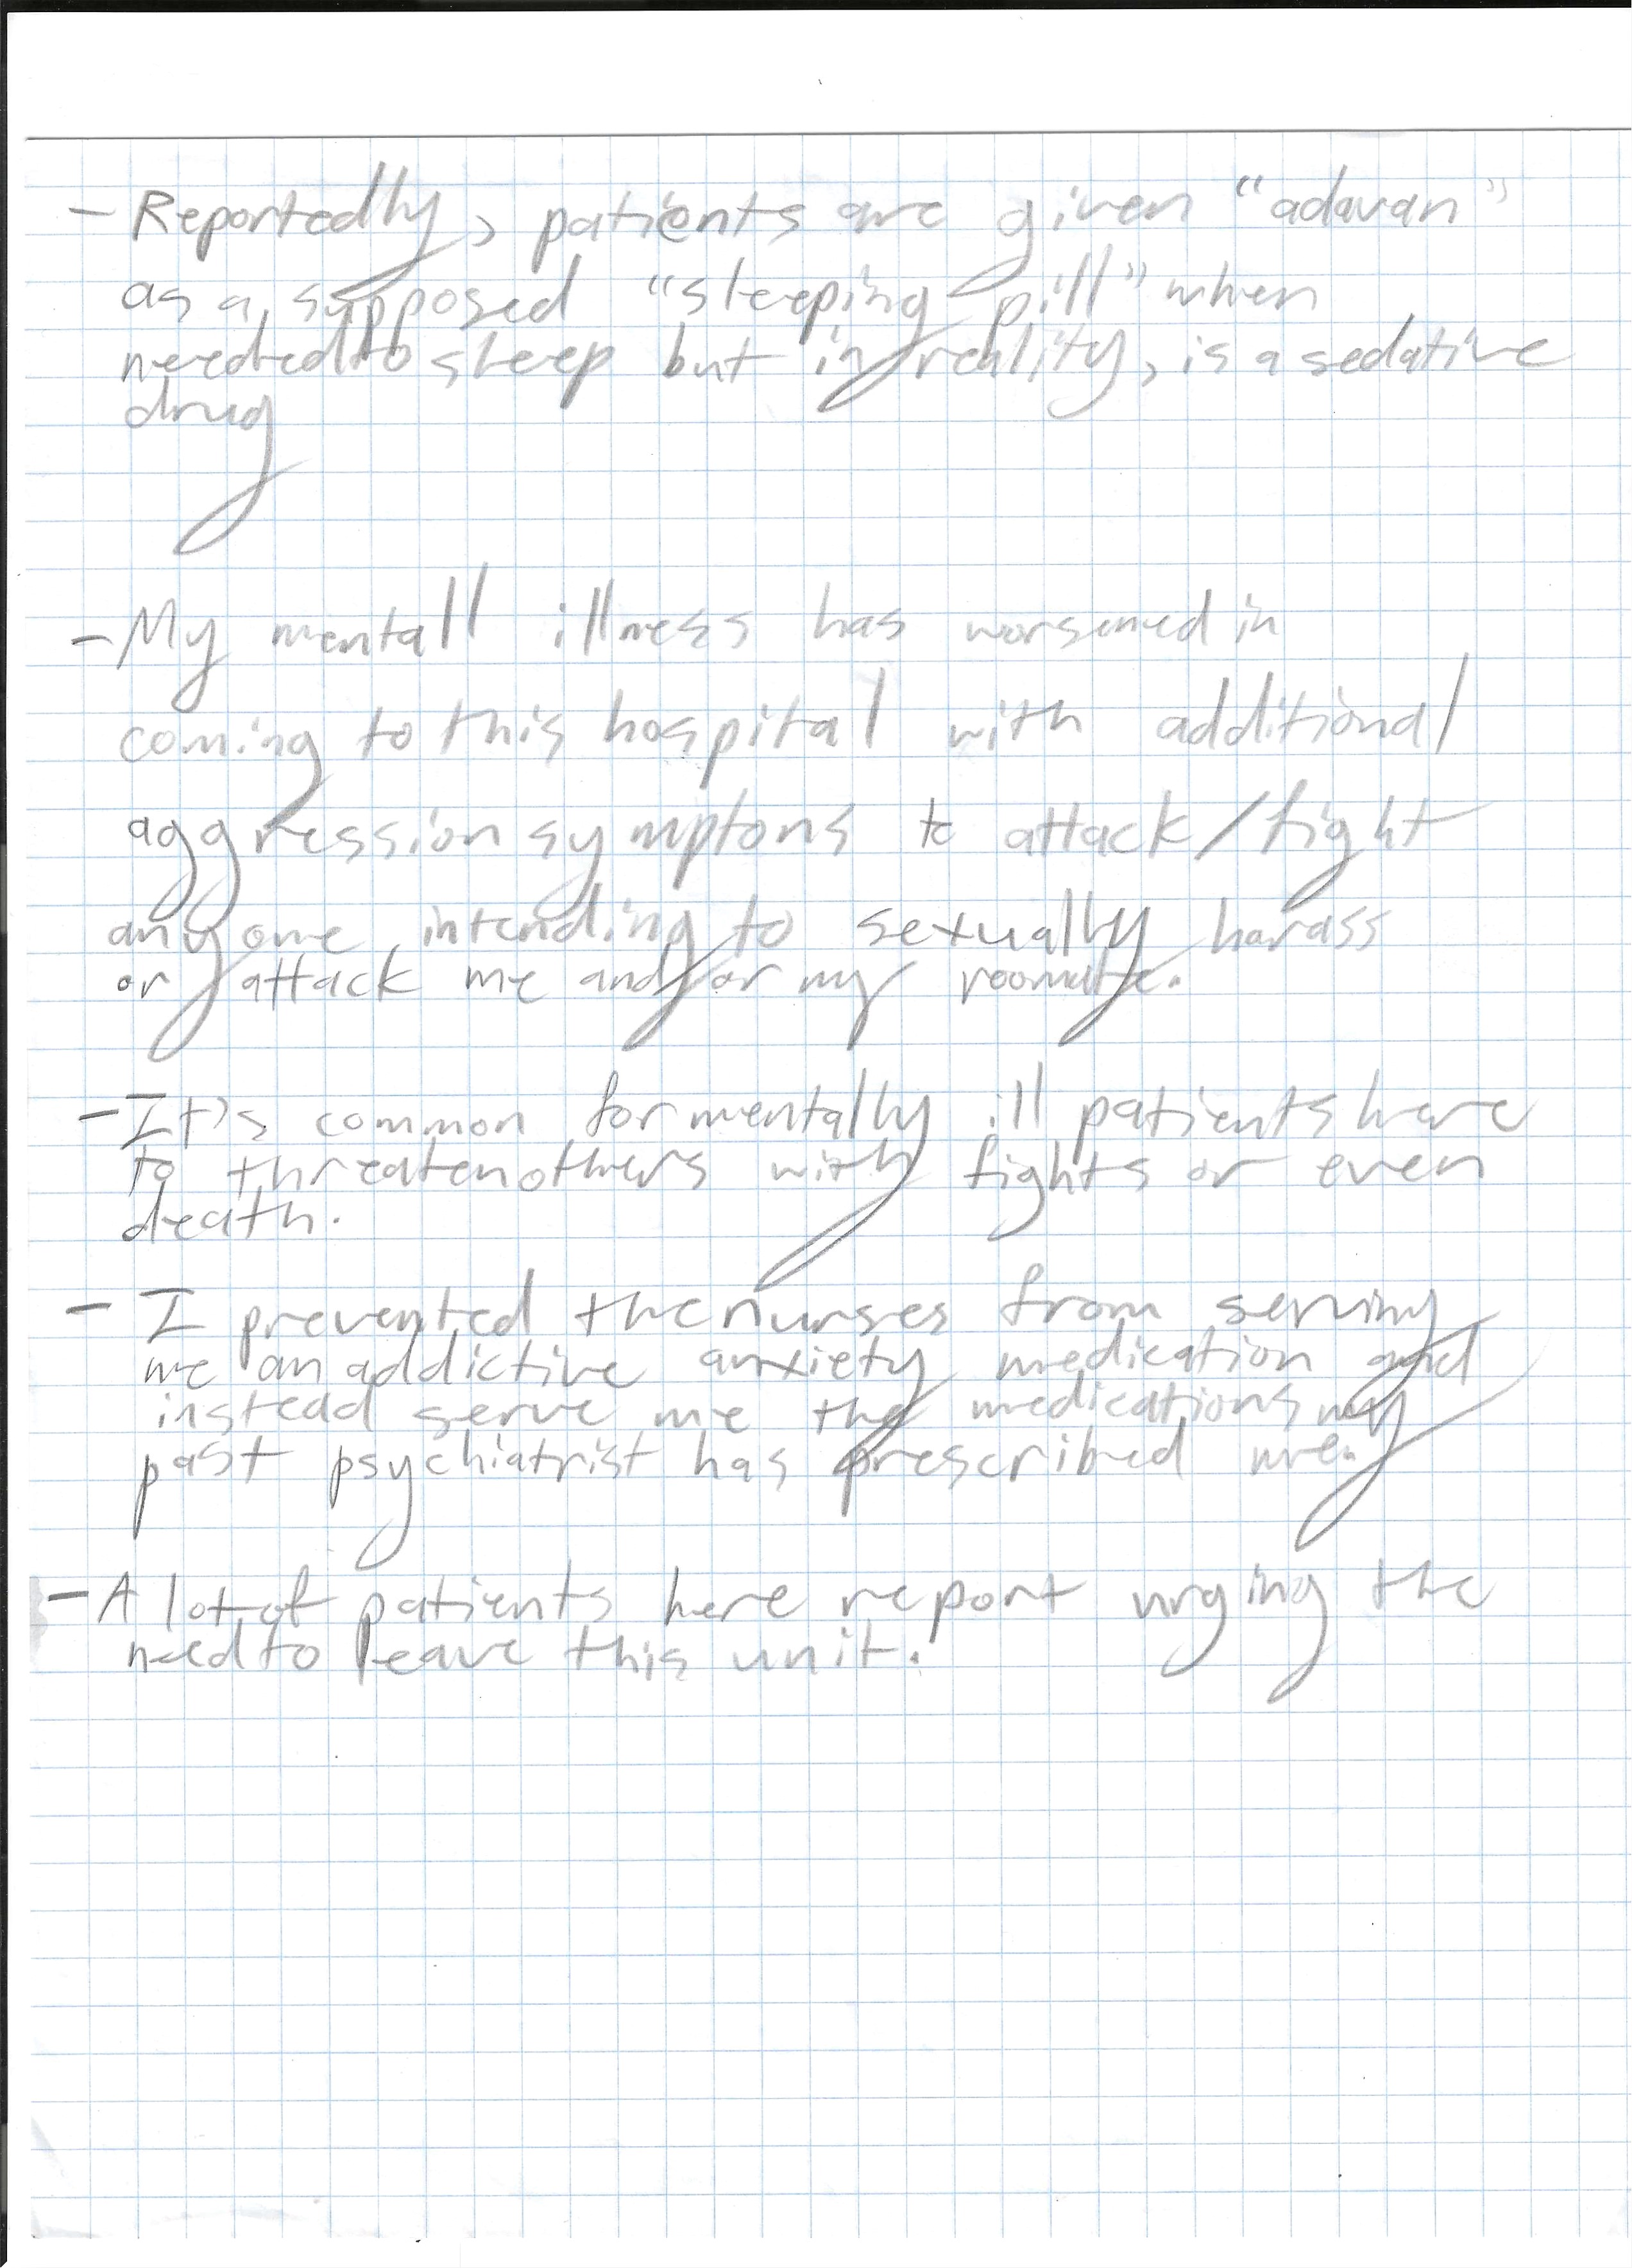 - Reportedly, patients are given "adavan"
as a supposed "sleeping pill" when
needed to sleep but in reality, is a sedative
drug
- My mentall illness has worsened in
coming to this hospital with additional
aggression symptons to attack/fight
anyone intending to sexually harass
or attack me and/or my roomate.
- It's common for mentally ill patients here
to threaten others with fights or even
death.
- I prevented the nurses from serving
me an addictive anxiety medication and
instead serve me the medications my
past psychiatrist has prescribed me.
- A lot of patients here report urging the
need to leave this unit.